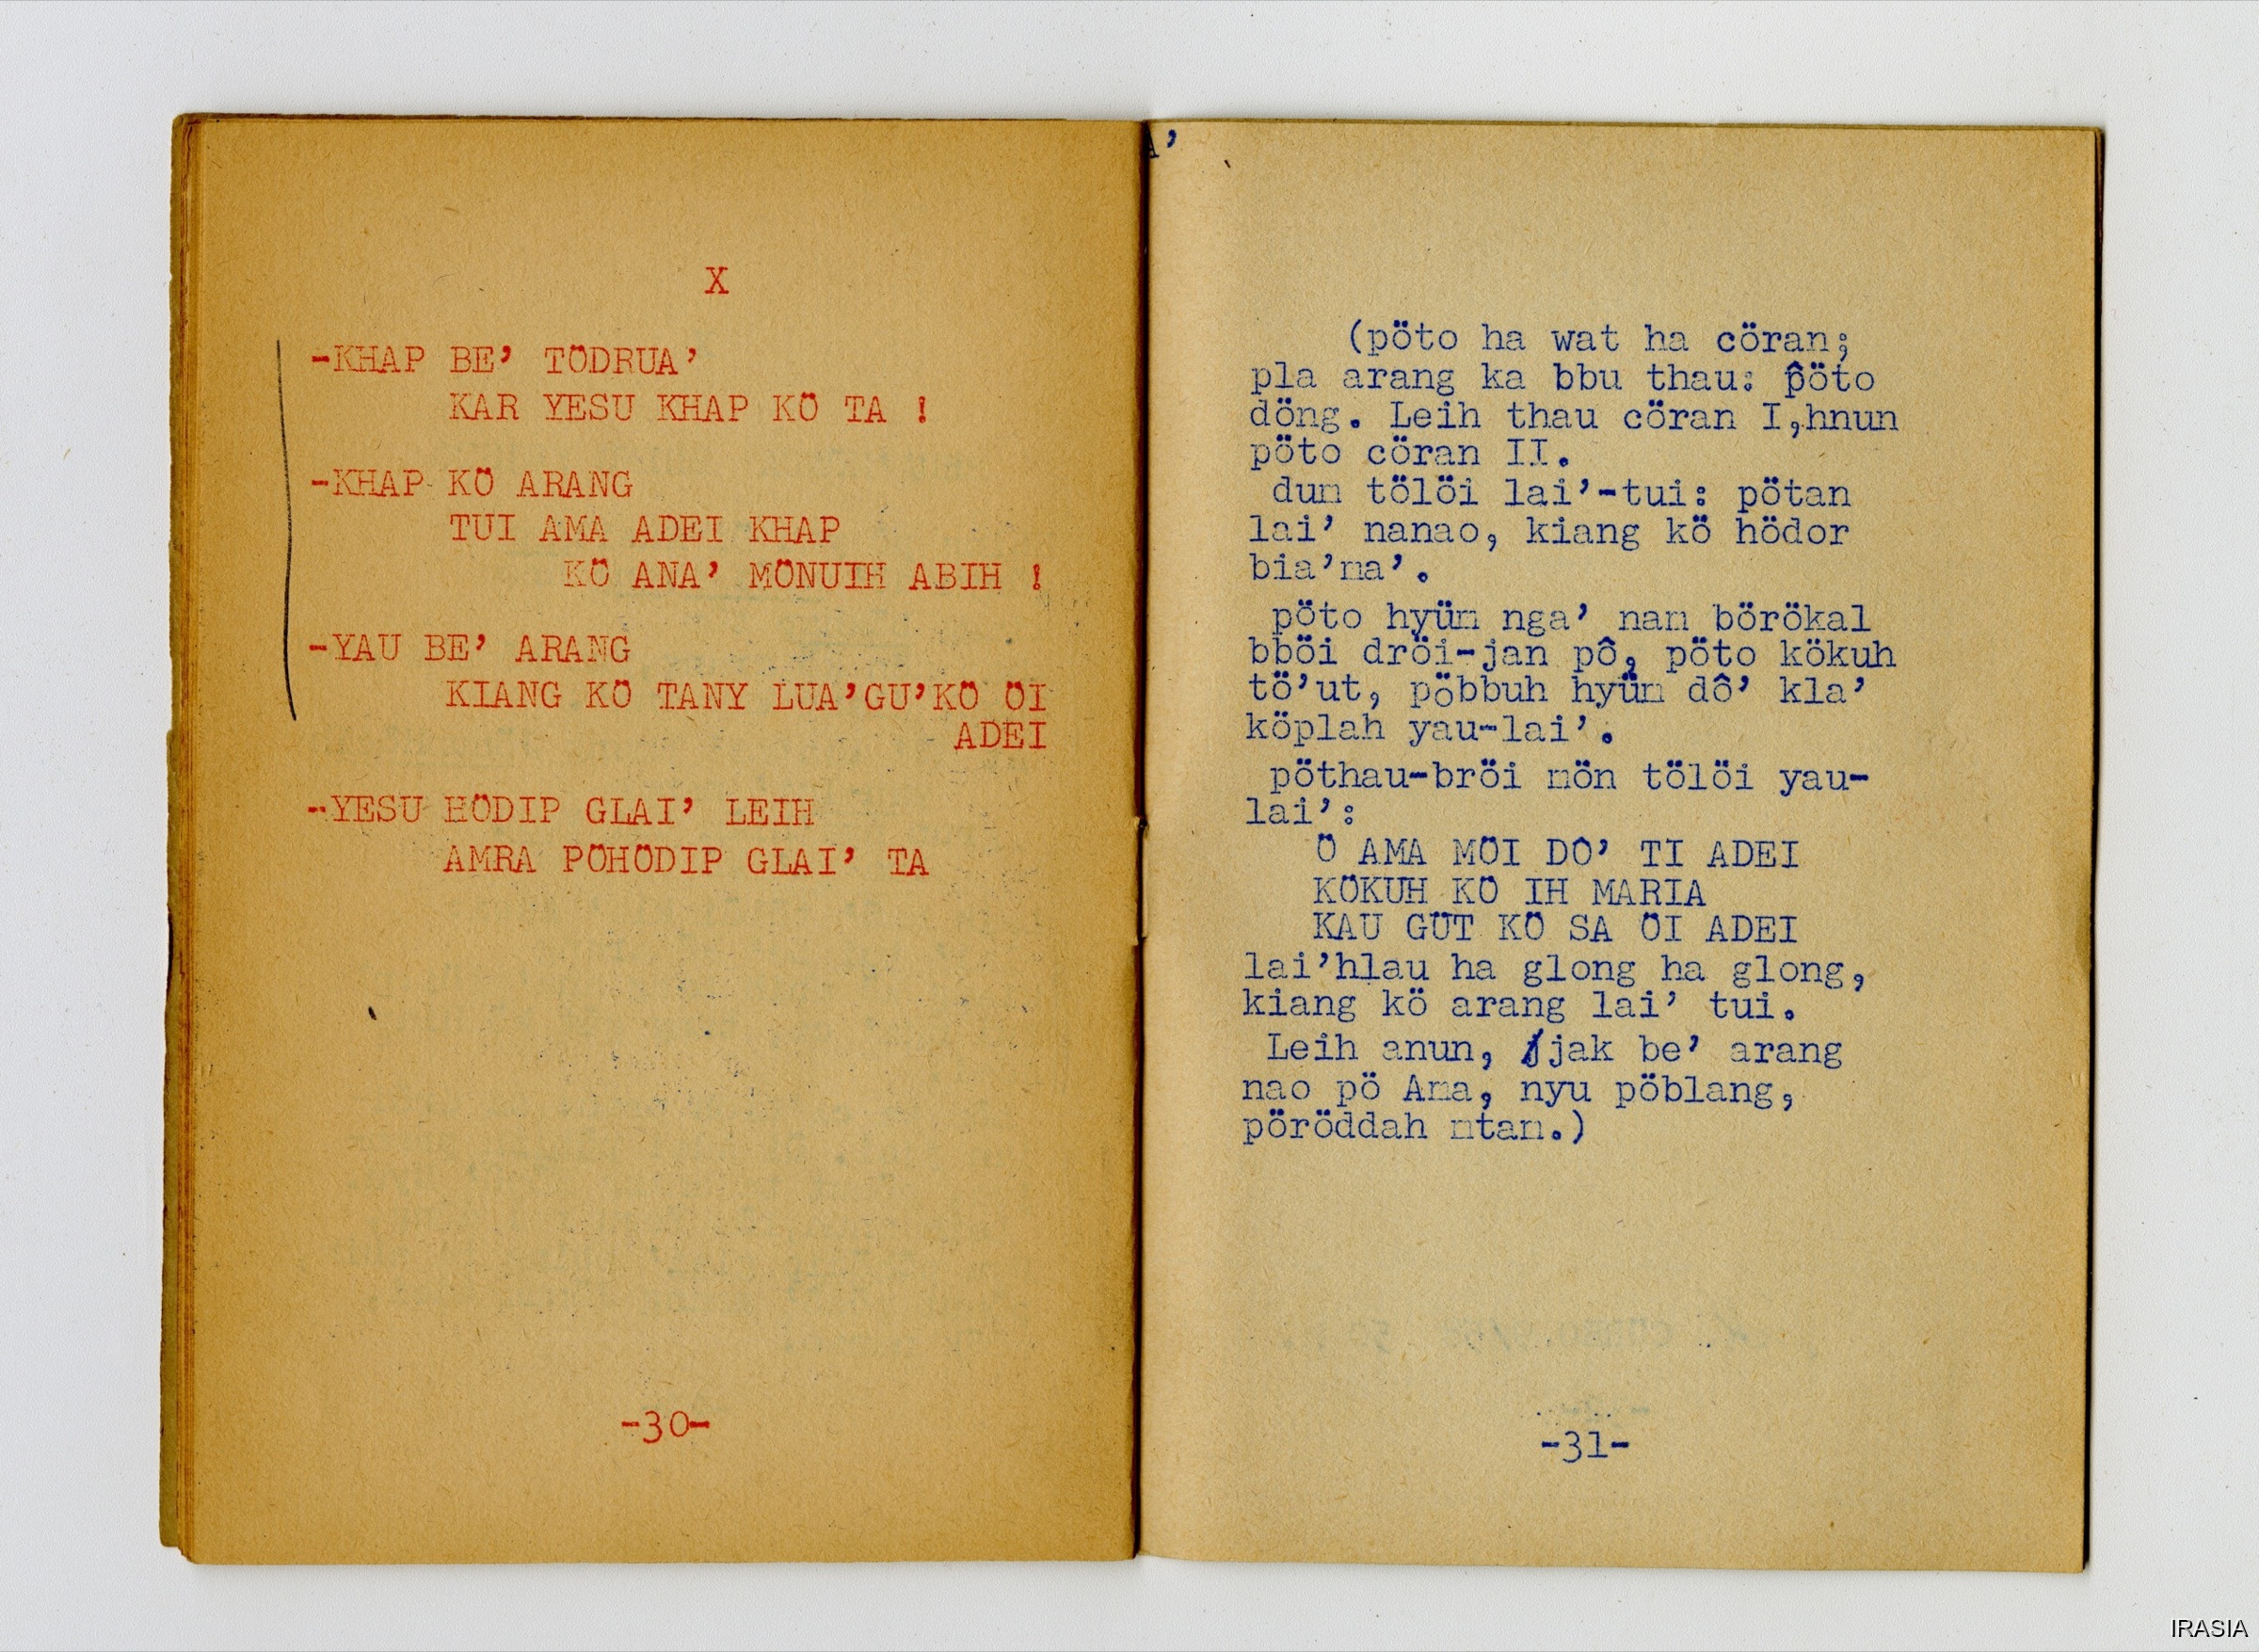 X
-KHAP BE’ TÖDRUA’
KAR YESU KHAP KÖ TA !
-KHAP KÖ ARANG
TUI AMA ADEI KHAP
KÖ ANA’ MÖNUIH ABIH !
-YAU BE’ ARANG
KIANG KÖ TANY LUA’GU’KÖ ÖI
ADEI
-YESU HÖDIP GLAI’ LEIH
AMRA PÖHÖDIP GLAI’ TA
-30-
A’
(pöto ha wat ha cöran;
pla arang ka bbu thau: pöto
döng. Leih thau cöran I,hnun
pöto cöran II.
dum tölöi lai’-tui: pötan
lai’ nanao, kiang kö hödor
bia’ma’.
pöto hyüm nga’ nam börökal
bböi dröi-jan pô, pöto kökuh
tö’ut, pöbbuh hyüm dô’ kla’
köplah yau-lai’.
pöthau-bröi mön tölöi yau-
lai’:
Ö AMA MÖI DÔ’ TI ADEI
KÖKUH KÖ IH MARIA
KAU GÜT KÖ SA ÖI ADEI
lai’hlau ha glong ha glong,
kiang kö arang lai’ tui.
Leih anun, jjak be’ arang
nao pö Ama, nyu pöblang,
pöröddah ntam.)
-31-
IRASIA